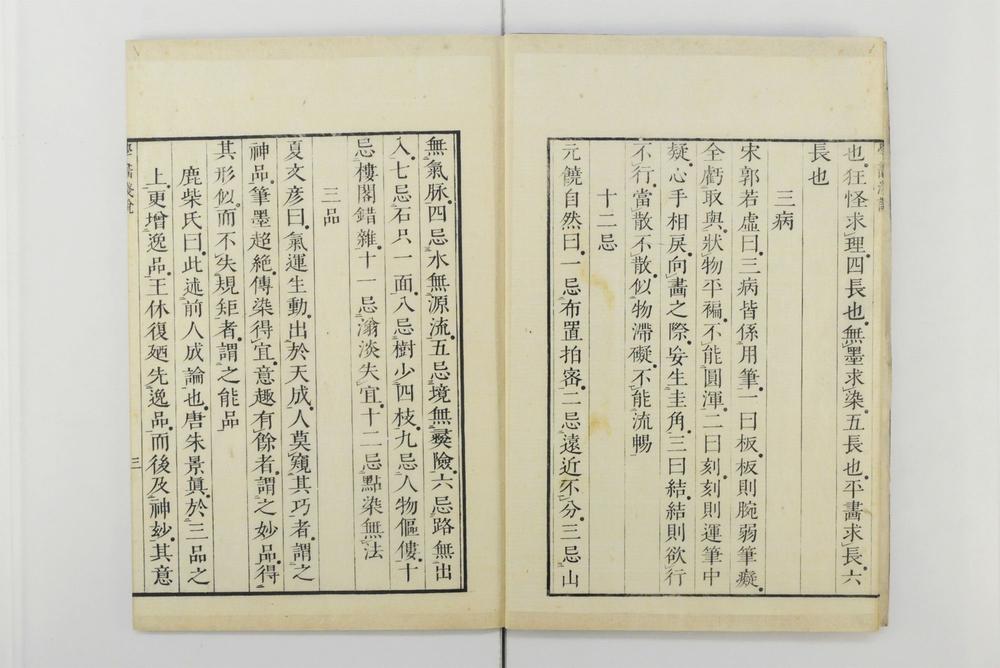 也狂怪求理四長也無墨求染五長也平畵求長六
長也
三病
宋郭若虛曰三病皆係用筆一曰板板則腕弱筆癡
全虧取與狀物平褊不能圓渾二曰刻刻則運筆中
疑心手相戾向畵之際妄生圭角三曰結結則欲行
不行當散不散似物滯礙不能流暢
十二忌
元饒自然曰一忌布置拍密二忌遠近不分三忌山
無氣脉四忌水無源流五忌境無夷險六忌路無出
入七忌石只一面八忌樹少四枝九忌人物傴僂十
忌樓閣錯雜十一忌滃淡失宜十二忌點染無法
三品
夏文彥曰氣運生動出於天成人莫窺其巧者謂之
神品筆墨超絶傳染得宜意趣有餘者謂之妙品得
其形似而不失規矩者謂之能品
鹿柴氏曰此述前人成論也唐朱景眞於三品之
上更增逸品王休復廼先逸品而後及神妙其意
三